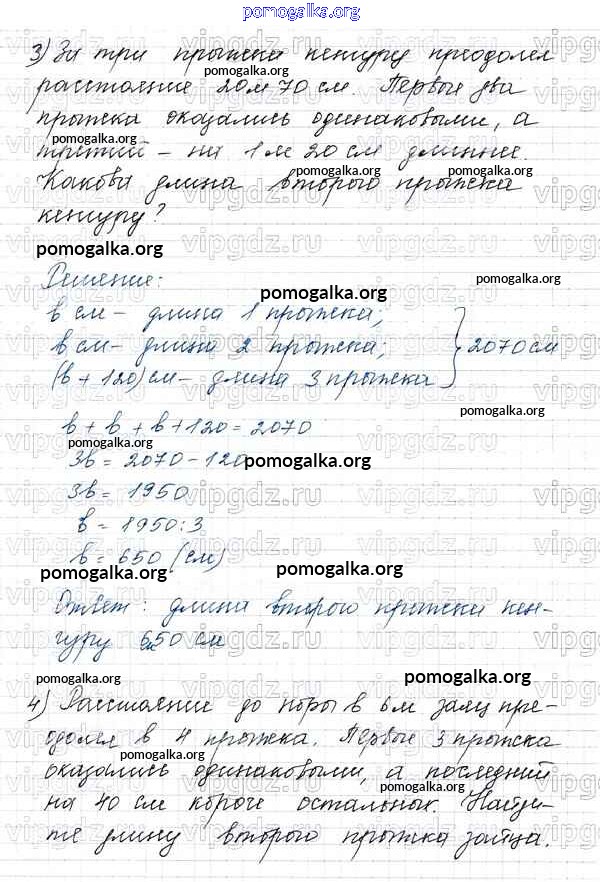 pomogalka.org
3) За три прыжка кенгуру преодолел
pomogalka.org
расстояние 20м 70 см. Первые два
прыжка оказались одинаковыми, а
pomogalka.org
третий – на 1 м 20 см длиннее.
pomogalka.org
Какова длина второго прыжка
кенгуру?
pomogalka.org
Решение:
pomogalka.org
pomogalka.org
b см – длина 1 прыжка;
b см – длина 2 прыжка;
(b + 120) см – длина 3 прыжка } 2070 см
pomogalka.org
b + b + b + 120 = 2070
pomogalka.org
3b = 2070 - 120
pomogalka.org
3b = 1950
b = 1950 : 3
b = 650 (см)
pomogalka.org
pomogalka.org
Ответ: длина второго прыжка кен-
гуру 650 см
pomogalka.org
pomogalka.org
4) Расстояние до норы в 6м заяц пре-
одолел в 4 прыжка. Первые 3 прыжка
pomogalka.org
оказались одинаковыми, а последний
pomogalka.org
на 40 см короче остальных. Найди-
те длину второго прыжка зайца.
vipgdz.ru